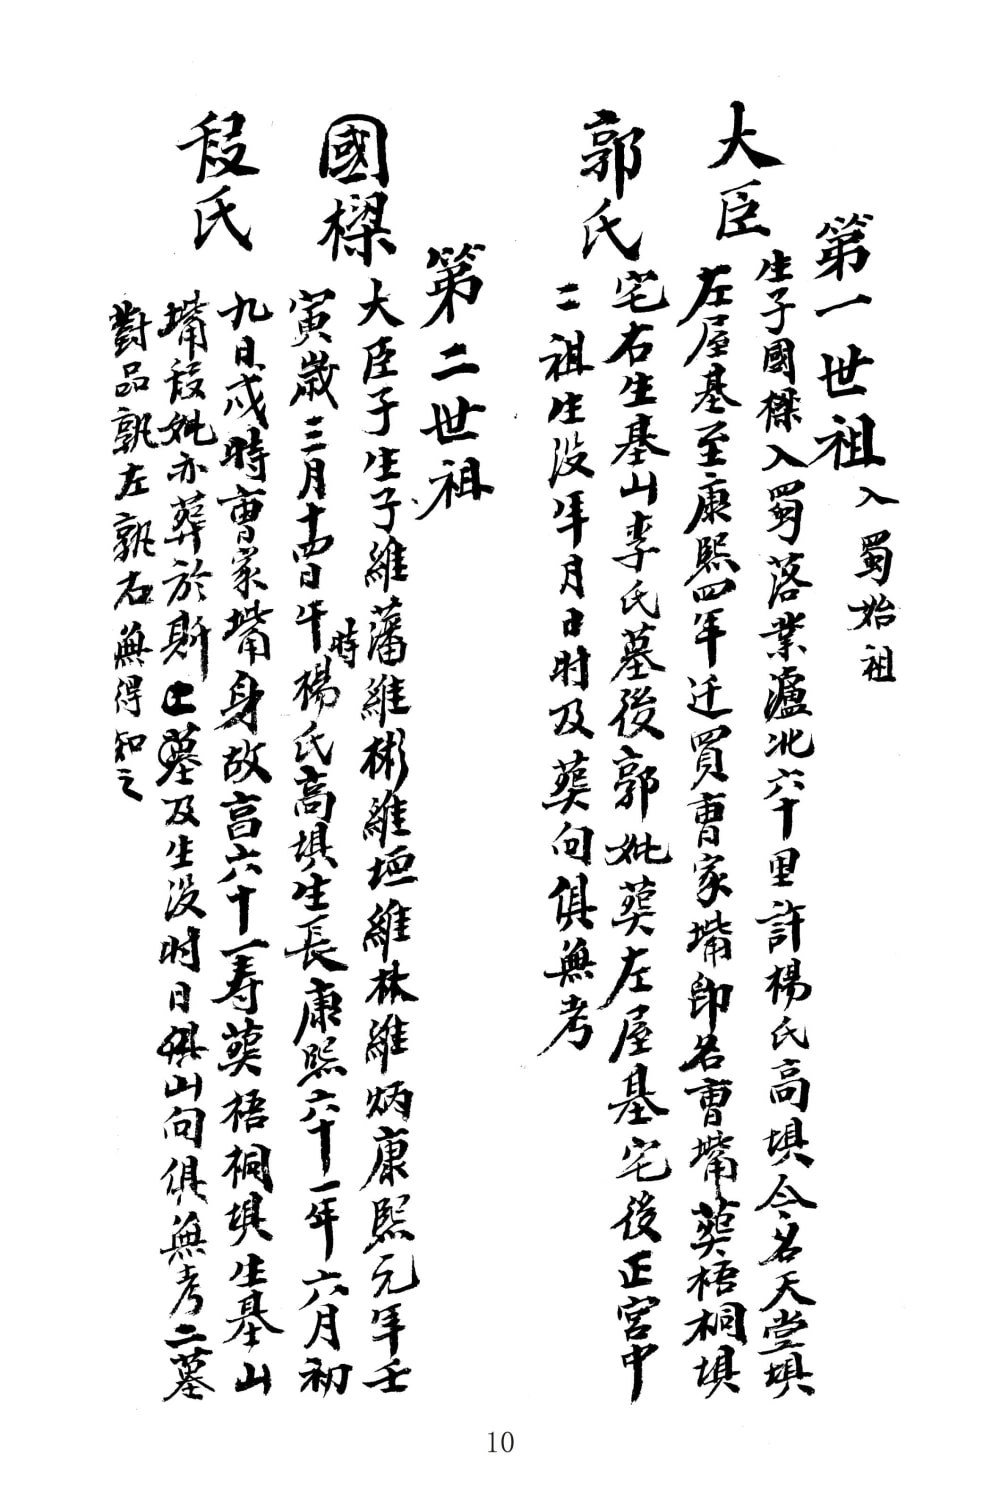 第一世祖入蜀始祖
大臣
生子國樑入蜀落業瀘北六十里許楊氏高垻今名天堂垻
左屋基至康熙四年迁買曹家嘴即名曹嘴葬梧桐垻
郭氏
宅右生基山李氏墓後郭妣葬左屋基宅後正宫中
二祖生没年月日时及葬向俱無考
第二世祖
國樑
大臣子生子維藩維彬維垣維林維炳康熙元年壬
寅歲三月十四日午時楊氏高垻生長康熙六十一年六月初
段氏
九日戌時曹家嘴身故享六十一寿葬梧桐垻生基山
嘴段妣亦葬於斯墓及生没时日俱山向俱無考二墓
對品孰左孰右無得知之
10